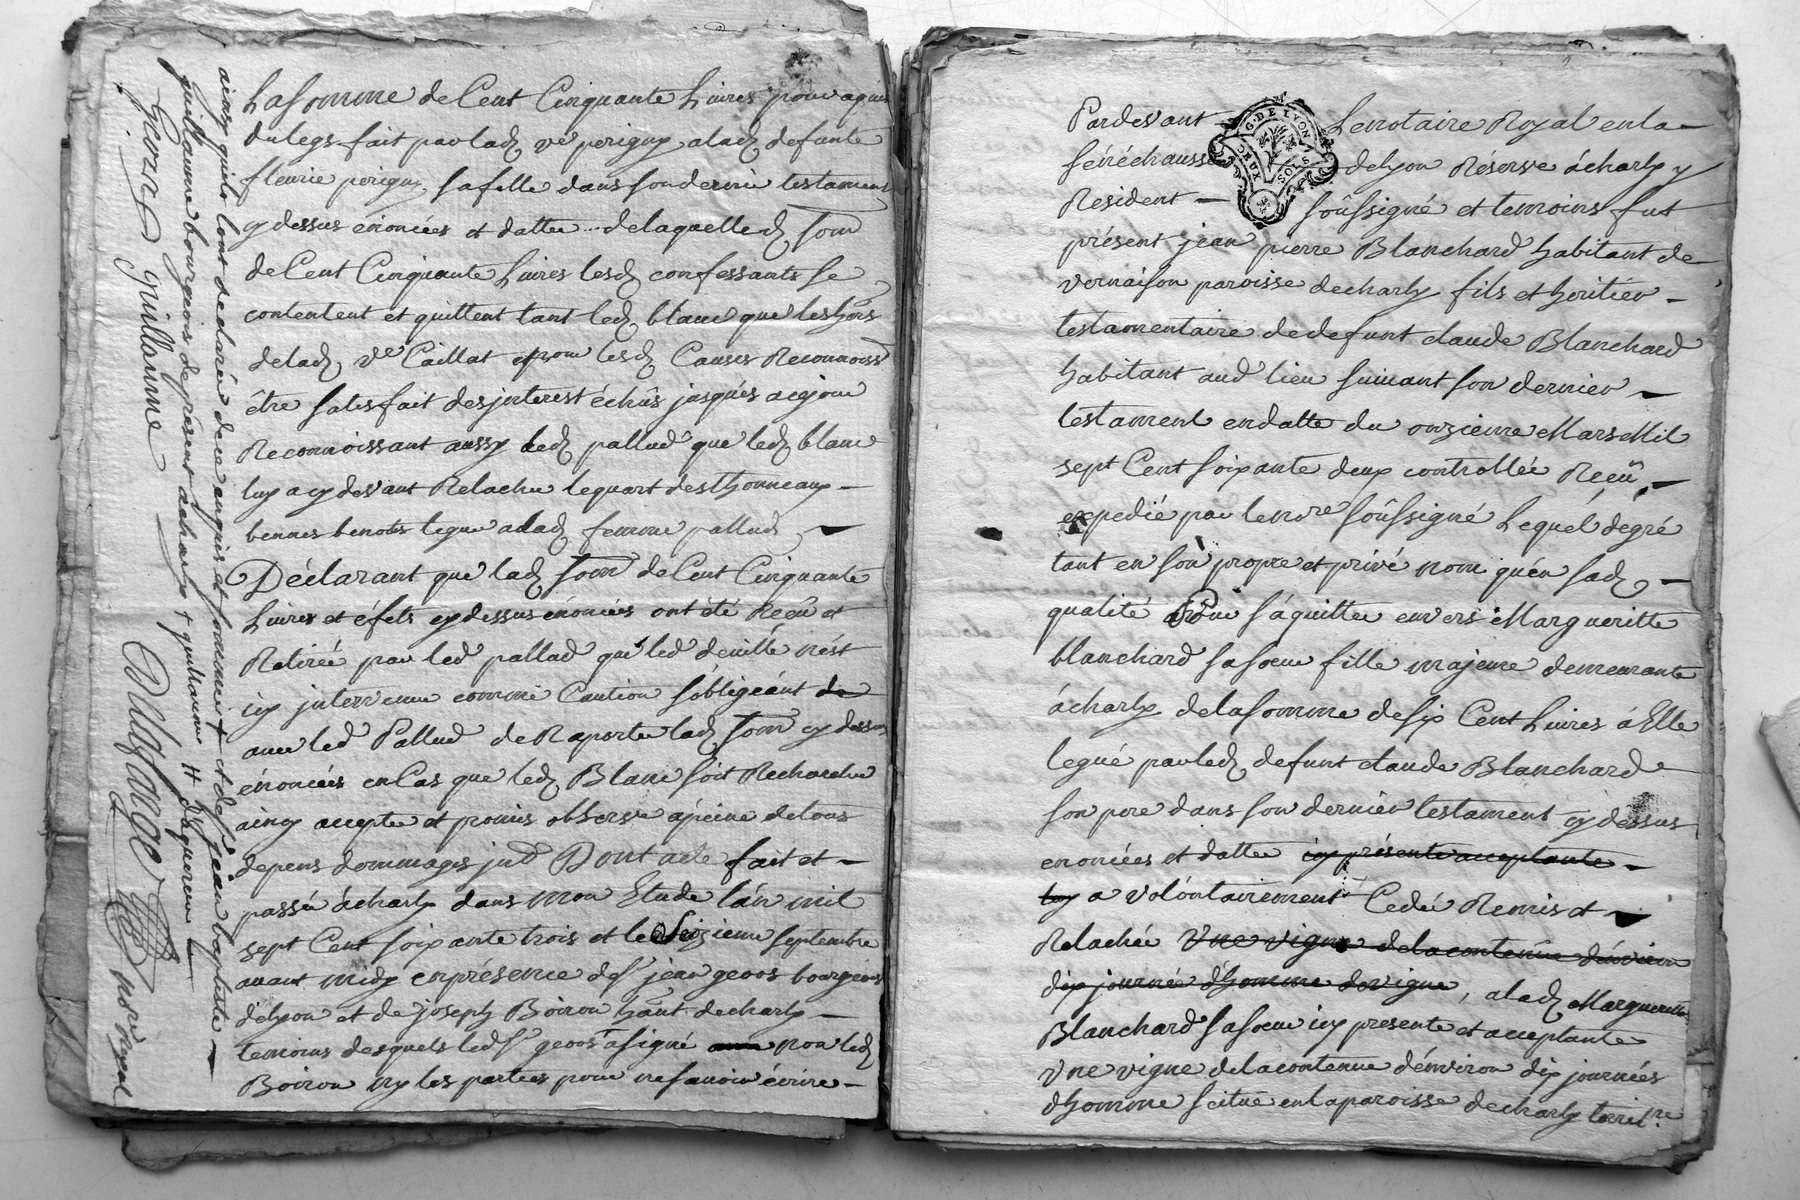 La somme de Cent Cinquante Livres pour aquis
du legs fait par lad ve perigny alad defunte
fleurie perigny sa fille dans son dernié testament
cy dessus enoncées et datté delaquelled som
de Cent Cinquante Livres lesd confessants se
contentent et quittent tant led blanc que les hoirs
delad ve Caillat pour lesd Causes Reconnoiss
être satisfait des jnterest échûs jusqués acejour
Reconnoissant aussy led pallud que led blanc
luy a cy devant Relaché le quart des thonneaux
bennes benots legué alad femme pallud
Déclarant que lad som de Cent Cinquante
Livres et éfets cy dessus énoncées ont été Reçû et
Retirée par led pallud que led n'est
icy jntervenu comme Caution s'obligeant de
avec led Pallud de Raporter lad som cy dessus
énoncées en Cas que led Blanc soit Recherché
ainsy accepté et promis observé apeine detous
depens dommages jnt Dont acte fait et
passé a charly dans mon Etude l'an mil
sept Cent soixante trois et le Seizieme septembre
avant midy en présence de sr jean geoos bourgeois
delyon et de joseph Boiron hant decharly
temoins desquels led sr geoos a signé non led
Boiron ny les parties pour ne savoir écrire
ainsy quils lont declarée de ce enquis et sommé et de sr jean baptiste
guillaume bourgeois de present acharly + guillaume # requerem
Geoos guillaume
nore Royal
Pardevant Le notaire Royal en la
sénéchaussé delyon Réservé á charly y
G. DE LYON
SOLS
Resident soussigné et temoins fut
présent jean pierre Blanchard habitant de
vernaison paroisse decharly fils et héritier
testamentaire dedefunt claude Blanchard
habitant aud lieu suivant son dernier
testament endatte du onzieme Mars Mil
sept Cent soixante deux controllée Reçû
expedié par lenore soussigné Lequel degré
tant en son propre et privé nom qu'en sad
qualité Pour s'áquitter envers Margueritte
blanchard sa soeur fille majeure demeurante
ácharly dela somme desix Cent Livres á Elle
legué parled defunt claude Blanchard
son pere dans son dernier testament cy dessus
enoncées et datté icy présente acceptante
luy a volóntairement Cedée Remis et
Relachée Vne vigne dela contenue dénviron
dix journée d'homme de vigne, alad Margueritte
Blanchard sa soeur icy presente et acceptante
Vne vigne delacontenue dénviron dix journées
dhomme scitué enlaparoisse decharly territre